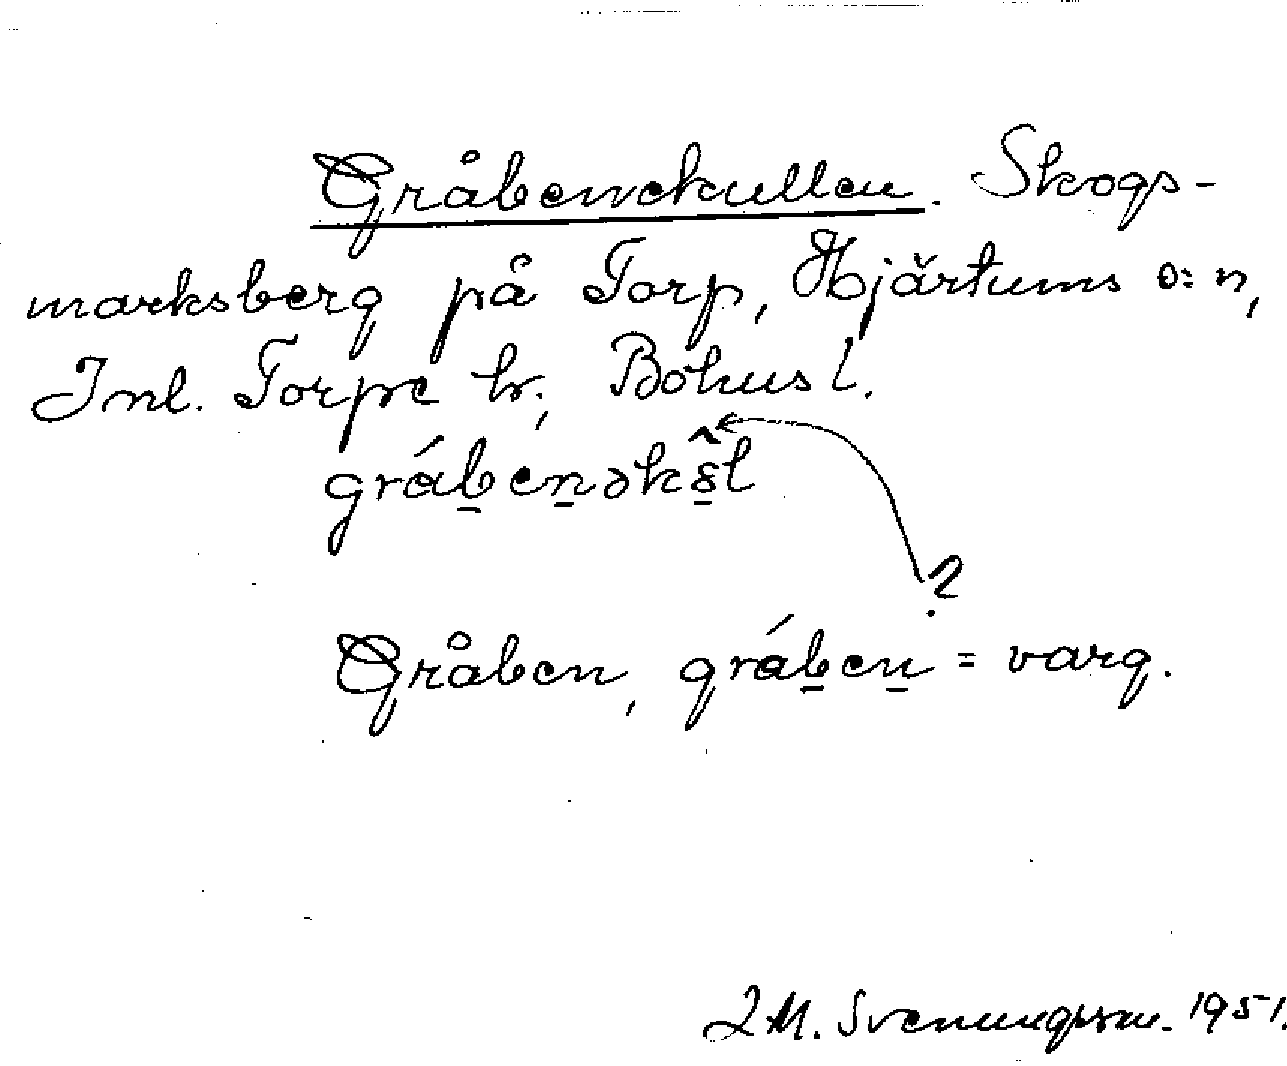 Gråbenekullen. Skogs-
marksberg på Torp, Hjärtums s:n,
Inl. Torpe hr., Bohusl.
?
Gråben, gráben = varg.
M. Svenungsson. 1951.